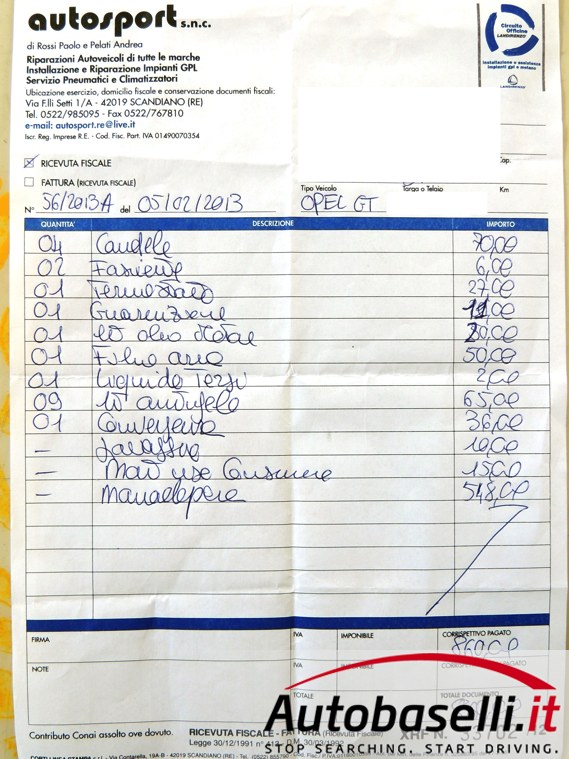 autosport s.n.c.
di Rossi Paolo e Pelati Andrea
Riparazioni Autoveicoli di tutte le marche
Installazione e Riparazione Impianti GPL
Servizio Pneumatici e Climatizzatori
Ubicazione esercizio, domicilio fiscale e conservazione documenti fiscali:
Via F.lli Setti 1/A - 42019 SCANDIANO (RE)
Tel. 0522/985095 - Fax 0522/767810
e-mail: autosport.re@live.it
Iscr. Reg. Imprese R.E. - Cod. Fisc. Part. IVA 01490070354
Circuito
Officine
LANDIRENZO
installazione e assistenza
impianti gpl e metano
LANDIRENZO
RICEVUTA FISCALE
Cap.
FATTURA (RICEVUTA FISCALE)
Tipo Veicolo Targa o Telaio Km
N° 56/2013A del 05/02/2013 OPEL GT
QUANTITA' DESCRIZIONE IMPORTO
04 Candele 70,00
02 6,00
01 Termostato 27,00
01 Guarnizione ,00
01 olio 0,00
01 Filtro aria 50,00
01 Liquido Tergi 2,00
09 65,00
01 36,00
— Lavaggio 10,00
— Mat use Consumo 15,00
— Manodopera 548,00
FIRMA IVA IMPONIBILE CORRISPETTIVO PAGATO
860,00
NOTE IVA
TOTALE TOTALE DOCUMENTO
Autobaselli.it
STOP SEARCHING. START DRIVING.
Contributo Conai assolto ove dovuto.
RICEVUTA FISCALE - FATTURA (Ricevuta Fiscale)
Legge 30/12/1991 n° 413 - D.M. 30/03/1992
XRF N.